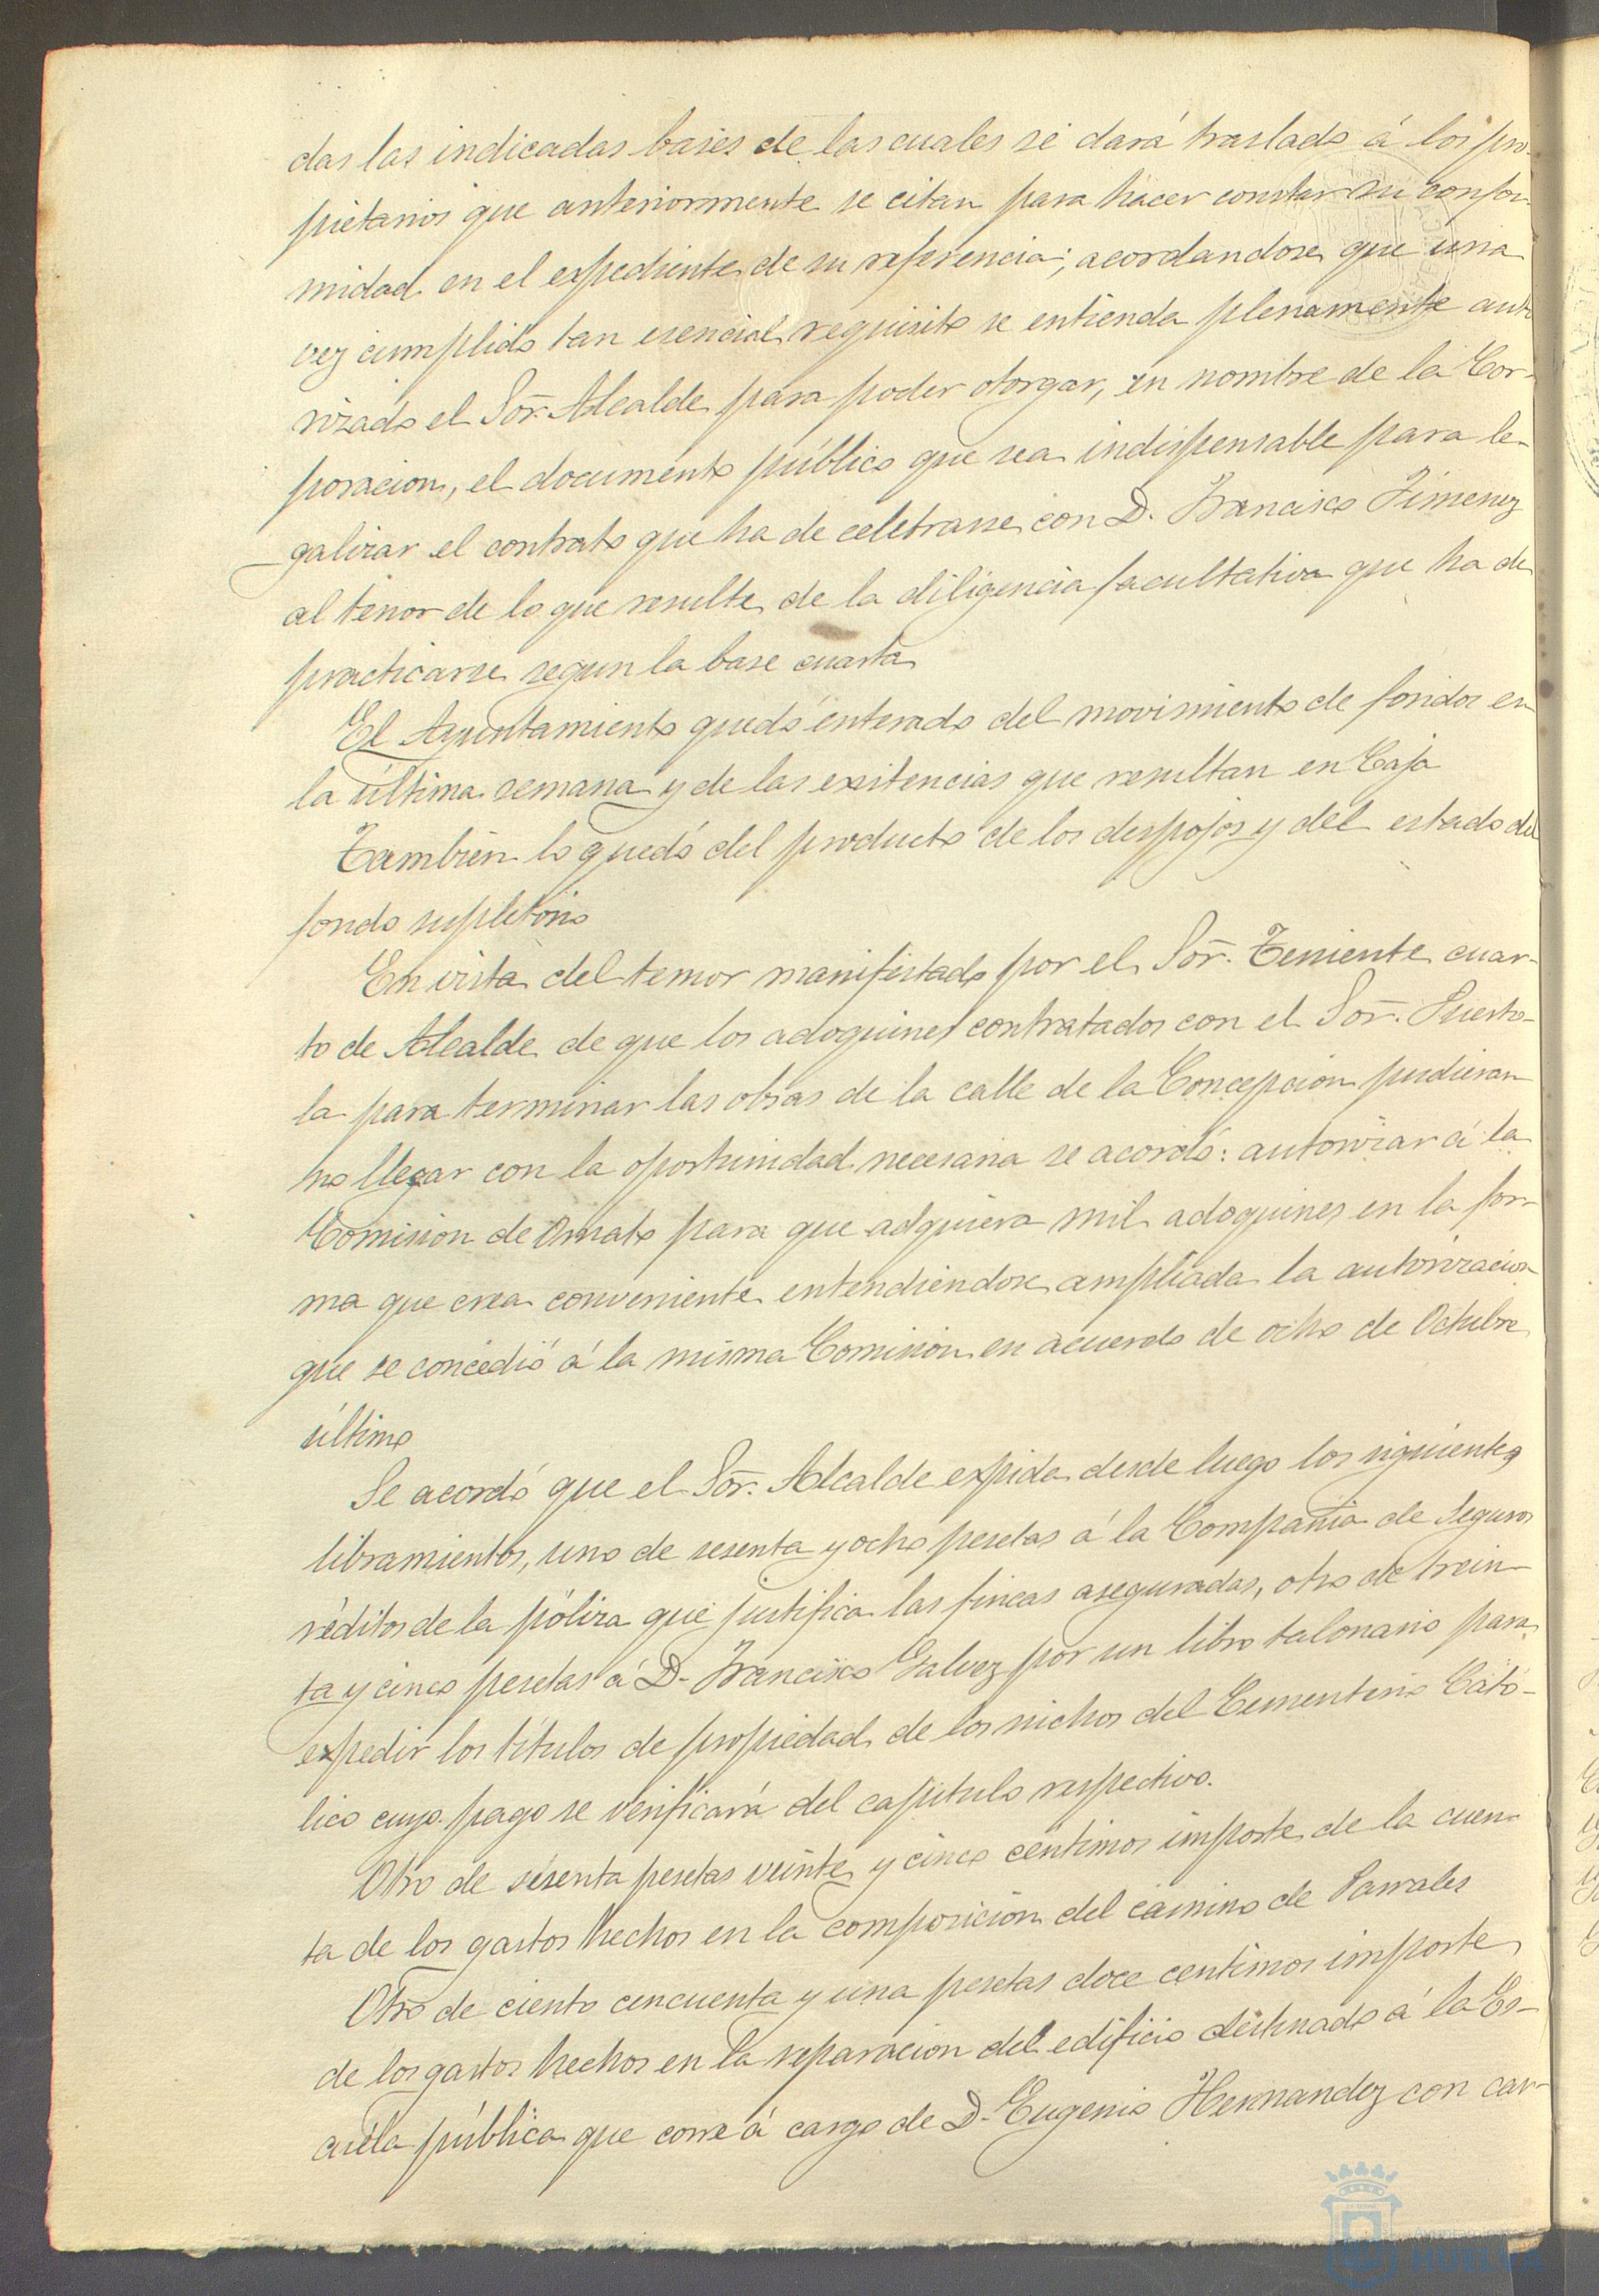 das las indicadas bases de las cuales se dará traslado á los pro-
pietarios que anteriormente se citan para hacer constar su confor-
midad en el expediente de su referencia; acordandose que una
vez cumplido tan esencial requisito se entienda plenamente auto
rizado el Sor. Alcalde para poder otorgar, en nombre de la Cor-
poracion, el documento público que sea indispensable para le-
galizar el contrato que ha de celebrarse con D. Francisco Jimenez
al tenor de lo que resulte de la diligencia facultativa que ha de
practicarse segun la base cuarta
El Ayuntamiento quedó enterado del movimiento de fondos en
la última semana y de las existencias que resultan en Caja
Tambien lo quedó del producto de los despojos y del estado del
fondo supletorio
En vista del temor manifestado por el Sor. Teniente cuar-
to de Alcalde de que los adoquines contratados con el Sor. Puerto-
la para terminar las obras de la calle de la Concepcion pudieran
no llegar con la oportunidad necesaria se acordó: autorizar á la
Comision de Ornato para que adquiera mil adoquines en la for-
ma que crea conveniente entendiendose ampliada la autorizacion
que se concedió á la misma Comision en acuerdo de ocho de Octubre
último
Se acordó que el Sor. Alcalde expida desde luego los siguientes
libramientos, uno de sesenta y ocho pesetas á la Compañia de Seguros
réditos de la póliza que justifica las fincas aseguradas, otro de trein-
ta y cinco pesetas á D. Francisco Galvez por un libro talonario para
expedir los títulos de propiedad de los nichos del Cementerio Cató-
lico cuyo pago se verificará del capitulo respectivo.
Otro de sesenta pesetas veinte y cinco centimos importe de la cuen-
ta de los gastos hechos en la composicion del camino de Parrales
Otro de ciento cincuenta y una pesetas doce centimos importe
de los gastos hechos en la reparacion del edificio destinado á la Es-
cuela pública que corre á cargo de D. Eugenio Hernandez con car-
Ayuntamiento de
HUELVA